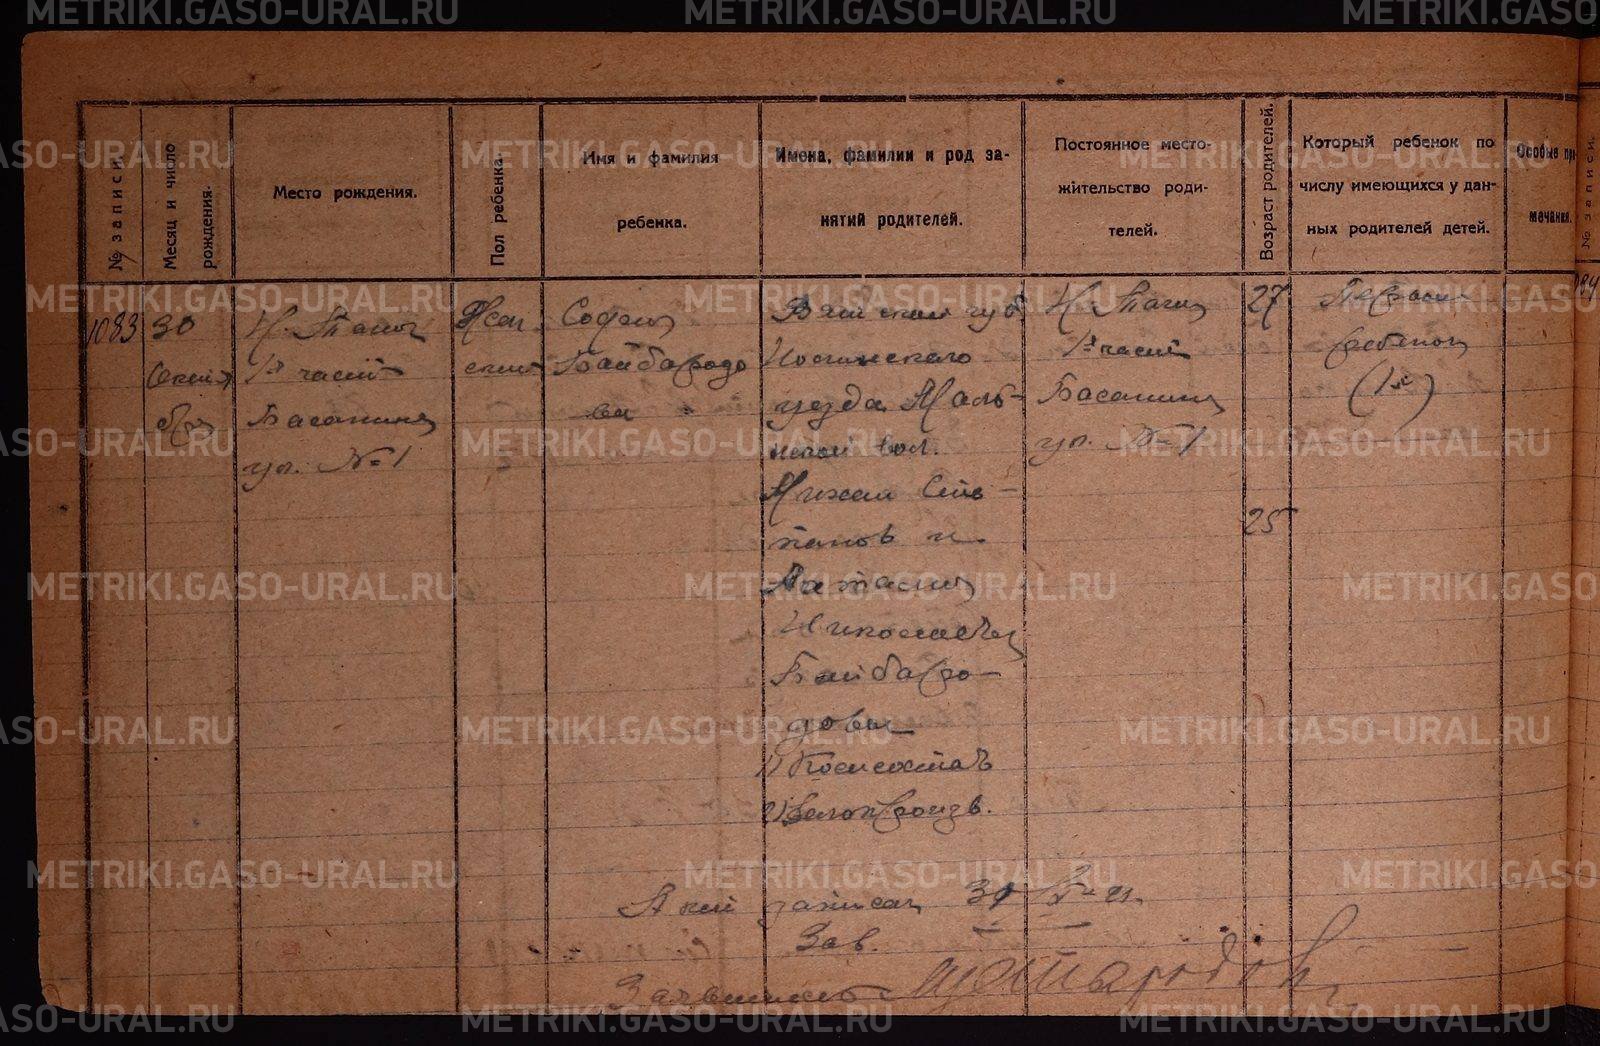 METRIKI.GASO-URAL.RU
№ записи.
Месяц и число
рождения.
Место рождения.
Пол ребенка.
Имя и фамилия
ребенка.
Имена, фамилии и род за-
нятий родителей.
Постоянное место-
жительство роди-
телей.
Возраст родителей.
Который ребенок по
числу имеющихся у дан-
ных родителей детей.
Особые при
мечания.
№ записи.
1083
30
Октяб
бря
Н. Тагил
1я часть
Басанина
ул. №1
Жен
ский
София
Байбародо
ва
Вятской губ
уезда
ской вол.
Михаил Сте-
панов и
Наталия
Николаевна
Байбаро-
довы
1)
2) Делопроизв.
Н. Тагил
1я часть
Басанина
ул. №1
27
25
Первый
ребенок
(1й)
Акт записан 31
Зав.